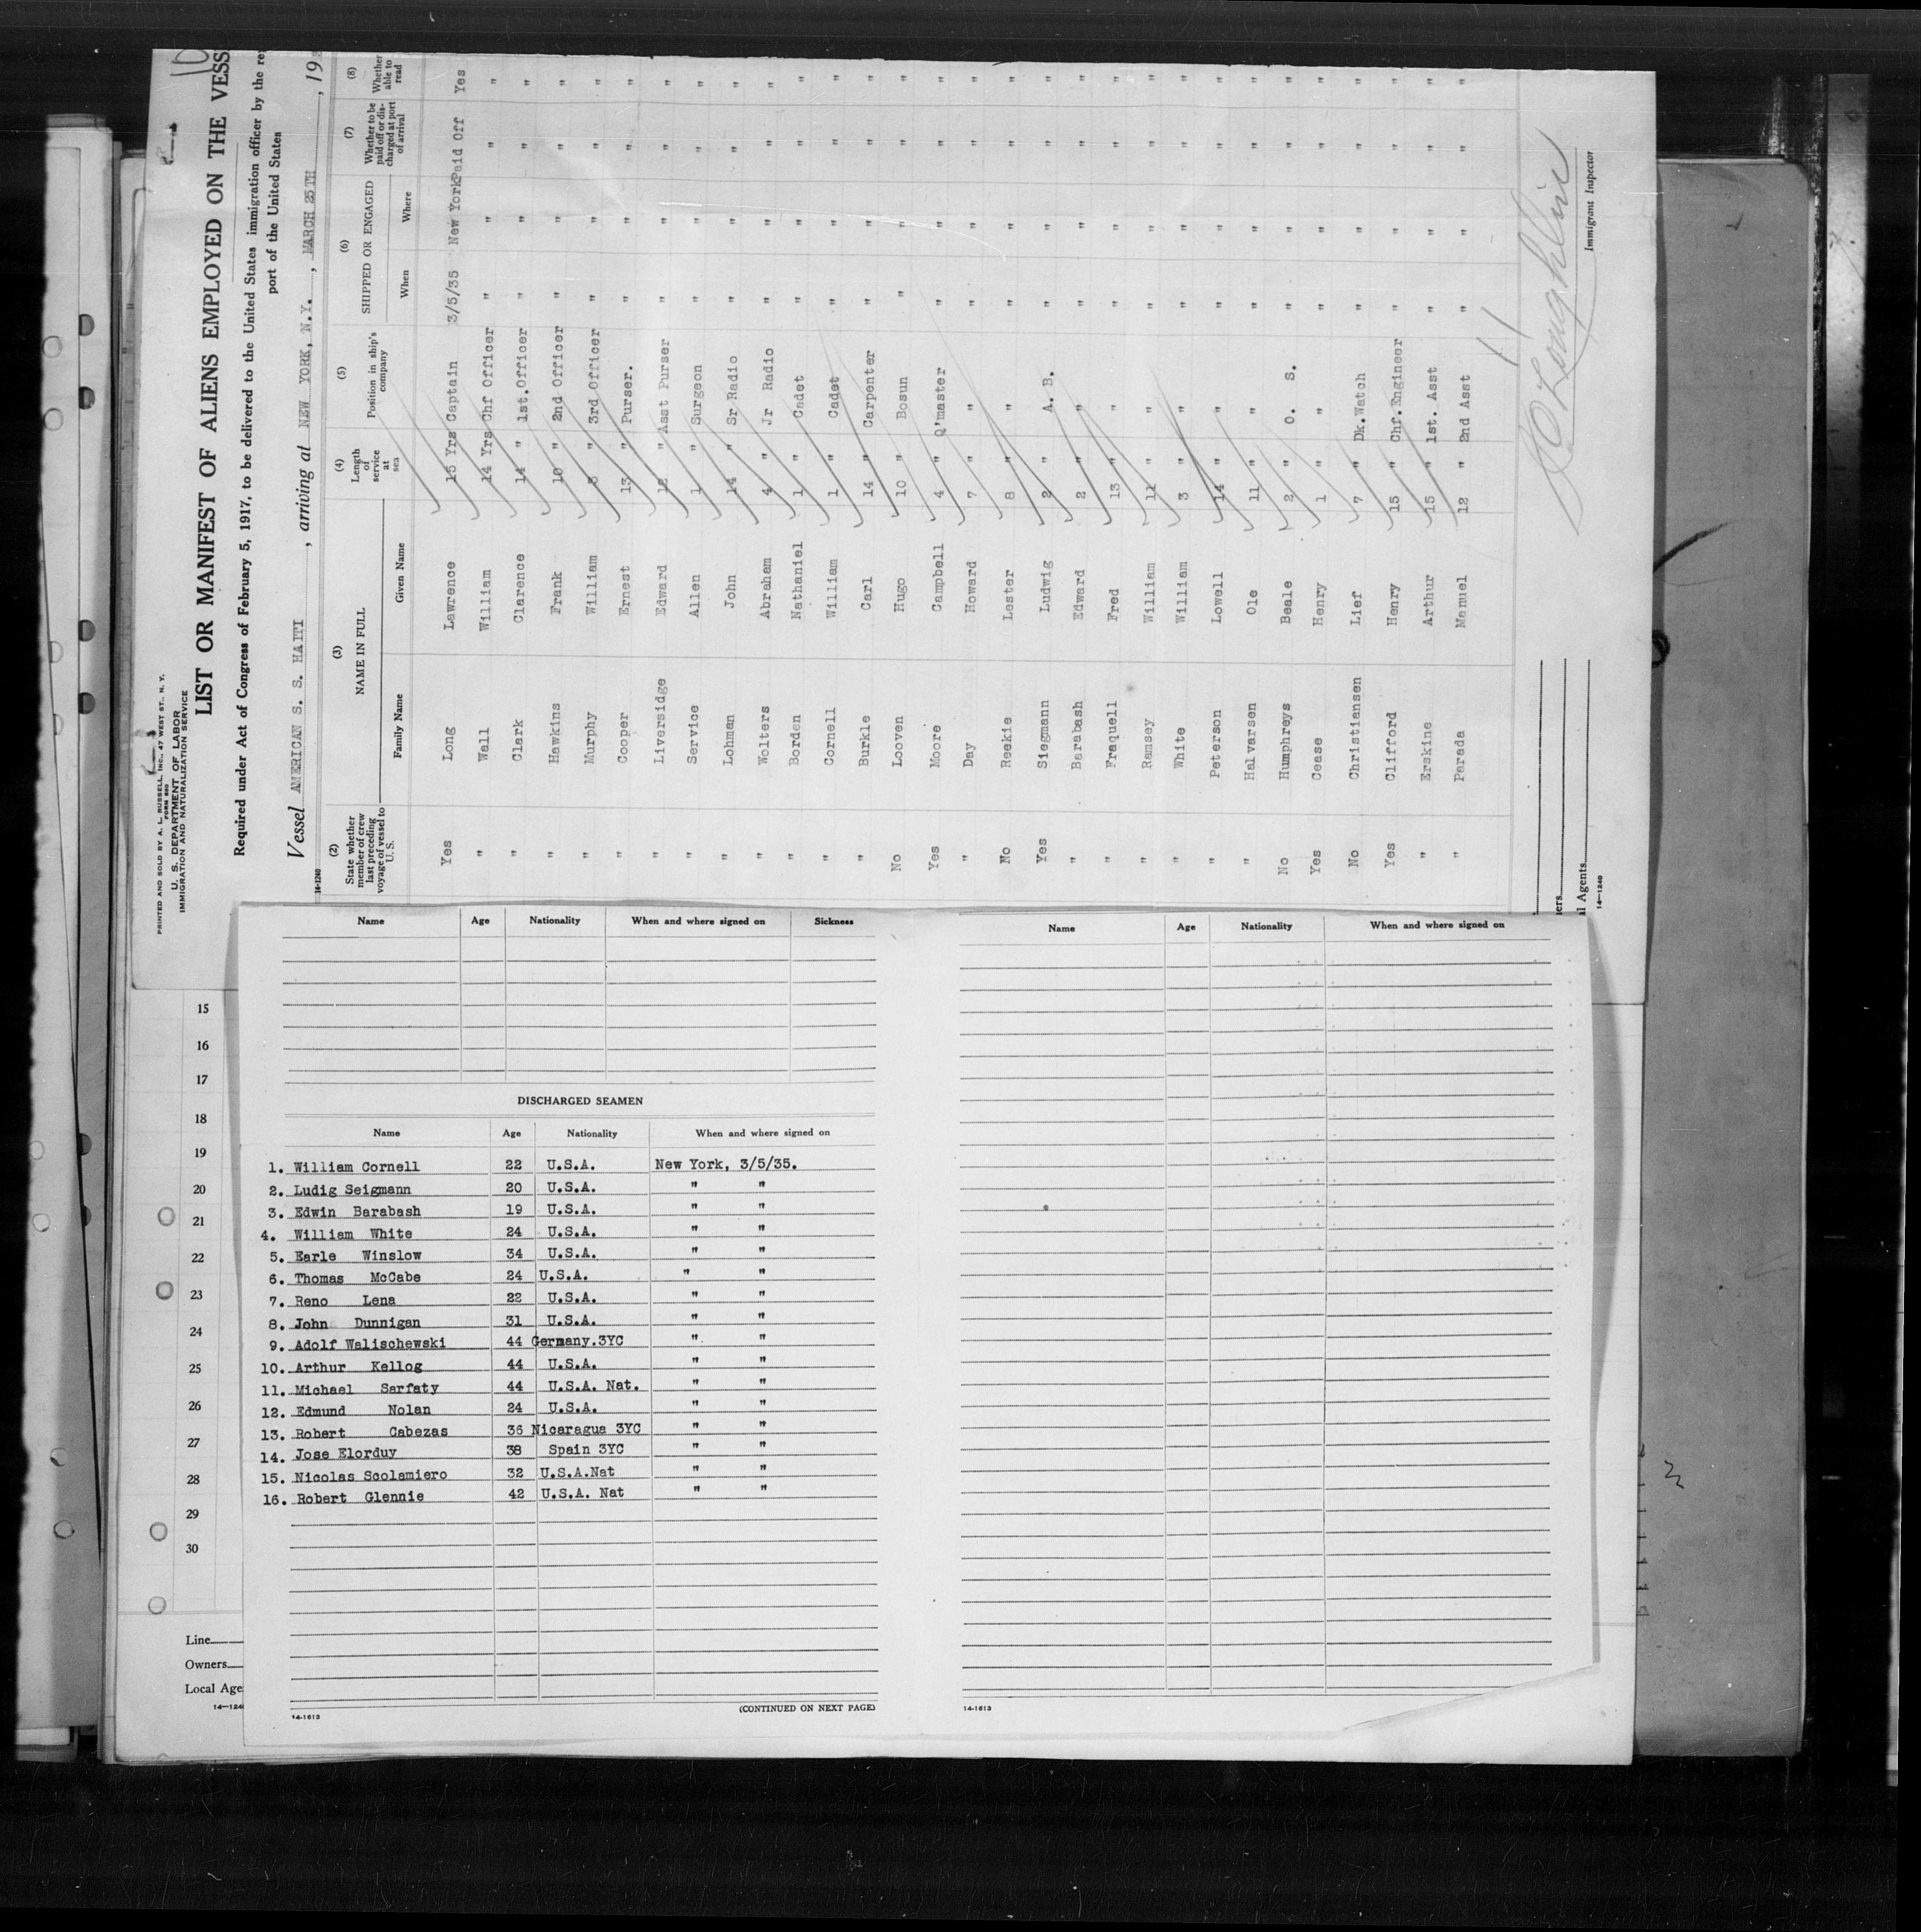 PRINTED AND SOLD BY A. L. RUSSELL, INC., 47 WEST ST., N. Y.
FORM 680
U. S. DEPARTMENT OF LABOR
IMMIGRATION AND NATURALIZATION SERVICE
LIST OR MANIFEST OF ALIENS EMPLOYED ON THE VESS
Required under Act of Congress of February 5, 1917, to be delivered to the United States immigration officer by the re
port of the United States
Vessel AMERICAN S. S. HAITI , arriving at NEW YORK, N.Y. , MARCH 25TH , 19
14-1240
(2) State whether member of crew last preceding voyage of vessel to U. S. (3) NAME IN FULL Family Name Given Name (4) Length of service at sea (5) Position in ship's company (6) SHIPPED OR ENGAGED When Where (7) Whether to be paid off or discharged at port of arrival (8) Whether able to read
Yes Long Lawrence 15 Yrs Captain 3/5/35 New York Paid Off Yes
" Wall William 14 Yrs Chf Officer " " " "
" Clark Clarence 14 " 1st.Officer " " " "
" Hawkins Frank 10 " 2nd Officer " " " "
" Murphy William " 3rd Officer " " " "
" Cooper Ernest 13 " Purser. " " " "
" Liversidge Edward 12 " Asst Purser " " " "
" Service Allen 1 " Surgeon " " " "
" Lohman John 14 " Sr Radio " " " "
" Wolters Abraham 4 " Jr Radio " " " "
" Borden Nathaniel 1 " Cadet " " " "
" Cornell William 1 " Cadet " " " "
" Burkle Carl 14 " Carpenter " " " "
No Looven Hugo 10 " Bosun " " " "
Yes Moore Campbell 4 " Q'master " " " "
" Day Howard 7 " " " " " "
No Reekie Lester 8 " " " " " "
Yes Siegmann Ludwig 2 " A. B. " " " "
" Barabash Edward 2 " " " " " "
" Fraquell Fred 13 " " " " " "
" Ramsey William 11 " " " " " "
" White William 3 " " " " " "
" Peterson Lowell 14 " " " " " "
" Halvarsen Ole 11 " " " " " "
No Humphreys Beale 2 " O. S. " " " "
Yes Cease Henry 1 " " " " " "
No Christiansen Lief 7 " Dk.Watch " " " "
Yes Clifford Henry 15 " Chf.Engineer " " " "
" Erskine Arthur 15 " 1st. Asst " " " "
" Parada Manuel 12 " 2nd Asst " " " "
Immigrant Inspector
ners
l Agents
14-1240
Name Age Nationality When and where signed on Sickness
DISCHARGED SEAMEN
Name Age Nationality When and where signed on
1. William Cornell 22 U.S.A. New York, 3/5/35.
2. Ludig Seigmann 20 U.S.A. " "
3. Edwin Barabash 19 U.S.A. " "
4. William White 24 U.S.A. " "
5. Earle Winslow 34 U.S.A. " "
6. Thomas McCabe 24 U.S.A. " "
7. Reno Lena 22 U.S.A. " "
8. John Dunnigan 31 U.S.A. " "
9. Adolf Walischewski 44 Germany.3YC " "
10. Arthur Kellog 44 U.S.A. " "
11. Michael Sarfaty 44 U.S.A. Nat. " "
12. Edmund Nolan 24 U.S.A. " "
13. Robert Cabezas 36 Nicaragua 3YC " "
14. Jose Elorduy 38 Spain 3YC " "
15. Nicolas Scolamiero 32 U.S.A.Nat " "
16. Robert Glennie 42 U.S.A. Nat " "
(CONTINUED ON NEXT PAGE)
14-1613
Name Age Nationality When and where signed on
14-1613
15
16
17
18
19
20
21
22
23
24
25
26
27
28
29
30
Line
Owners
Local Age
14-124